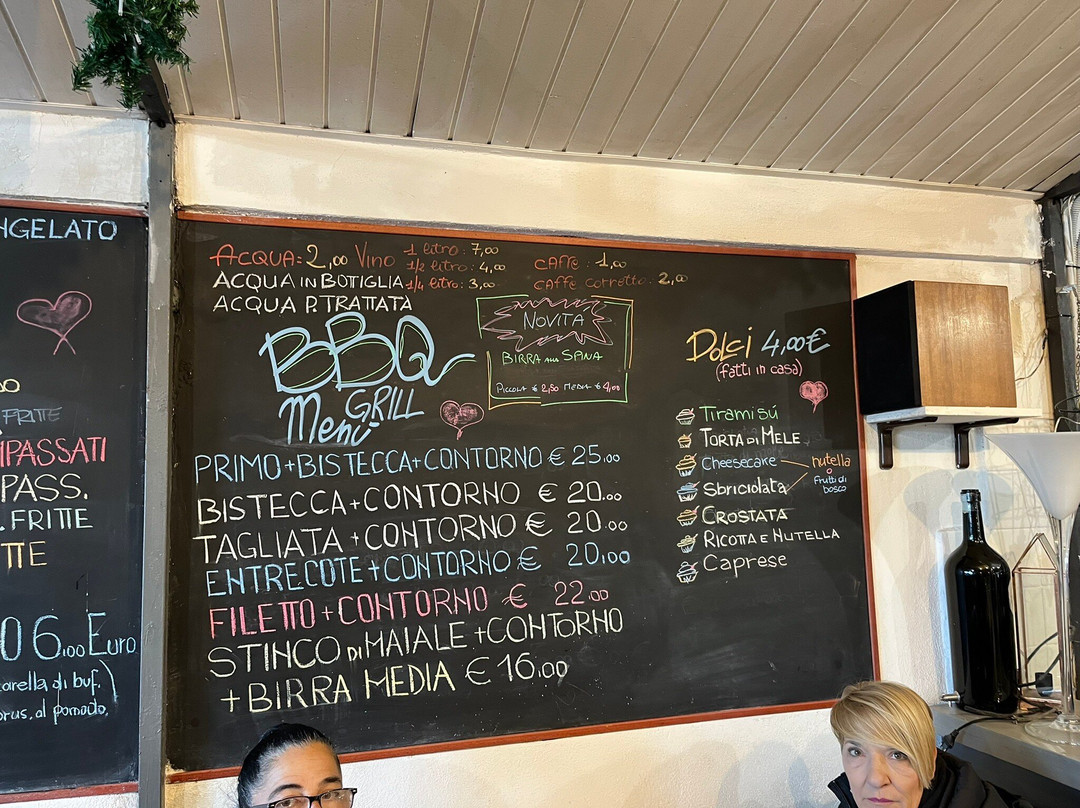 NGELATO
FRITTE
IPASSATI
PASS.
.FRITTE
TTE
6,00 Euro
arella di buf.)
orus, al pomodo.
ACQUA: 2,00 Vino 1 litro: 7,00
1/2 litro: 4,00
ACQUA IN BOTTIGLIA 1/4 litro: 3,00
ACQUA P. TRATTATA
CAFFE: 1,00
CAFFE CORRETTO: 2,00
NOVITA'
BIRRA ALLA SPINA
PICCOLA € 2,50 MEDIA € 4,00
BBQ
GRILL
Menù
PRIMO+BISTECCA+CONTORNO € 25,00
BISTECCA+CONTORNO € 20,00
TAGLIATA+CONTORNO € 20,00
ENTRECOTE+CONTORNO € 20,00
FILETTO+CONTORNO € 22,00
STINCO DI MAIALE+CONTORNO
+BIRRA MEDIA € 16,00
Dolci 4,00€
(fatti in casa)
Tiramisù
TORTA DI MELE
Cheesecake
Sbriciolata
nutella
o
frutti di
bosco
CROSTATA
RICOTTA E NUTELLA
Caprese